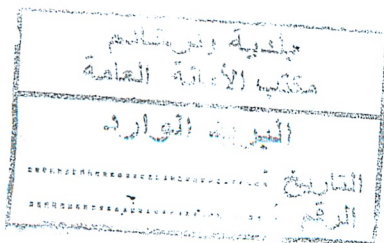 بلدية
مكتب الأمانة العامة
البريد الوارد
التاريخ :
الرقم :